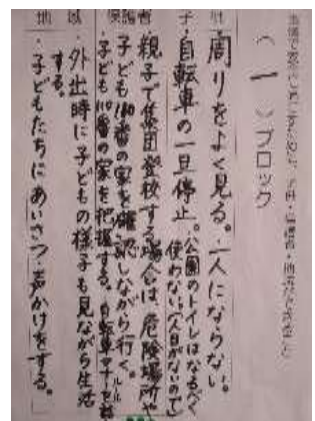 （一）ブロック
子供
・周りをよく見る。・一人にならない。
・自転車の一旦停止。・公園のトイレはなるべく
使わない（人目がないので）
保護者
親子で集団登校する場合は、危険場所や
子ども110番の家を確認しながら行く。
・子ども110番の家を把握する。・自転車マナー
ルール
地域
・外出時に子どもの様子も見ながら生活
する。
・子どもたちにあいさつ・声かけをする。